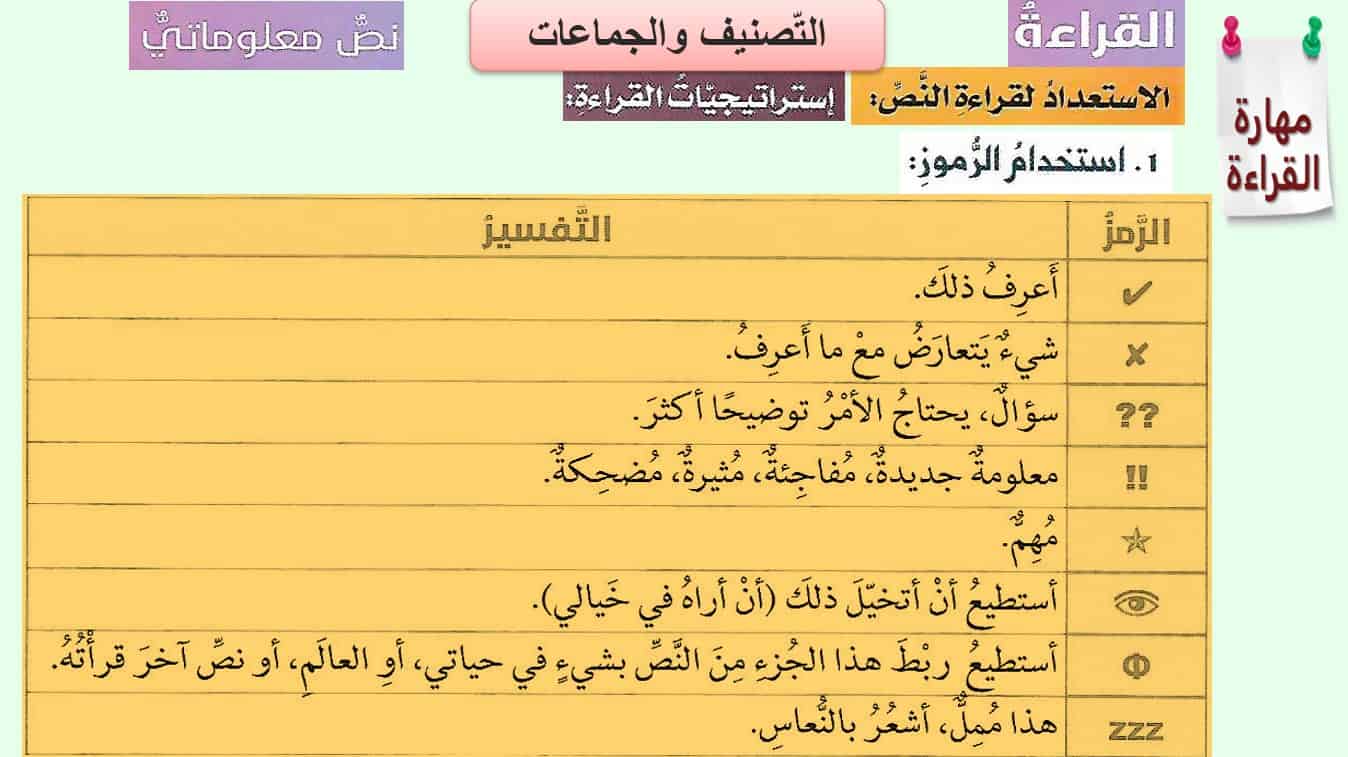 القراءةُ
التّصنيف والجماعات
نصٌّ معلوماتيٌّ
مهارة
القراءة
الاستعدادُ لقراءةِ النَّصِّ:
إستراتيجيّاتُ القراءةِ:
1. استخدامُ الرُّموزِ:
الرَّمزُ التَّفسيرُ
✔ أَعرِفُ ذلكَ.
✘ شيءٌ يَتعارَضُ معْ ما أَعرِفُ.
?? سؤالٌ، يحتاجُ الأمْرُ توضيحًا أكثرَ.
!! معلومةٌ جديدةٌ، مُفاجِئةٌ، مُثيرةٌ، مُضحِكةٌ.
مُهِمٌّ.
أستطيعُ أنْ أتخيّلَ ذلكَ (أنْ أراهُ في خَيالي).
Φ أستطيعُ ربْطَ هذا الجُزءِ مِنَ النَّصِّ بشيءٍ في حياتي، أوِ العالَمِ، أو نصِّ آخرَ قرأْتُهُ.
zzz هذا مُمِلٌّ، أشعُرُ بالنُّعاسِ.